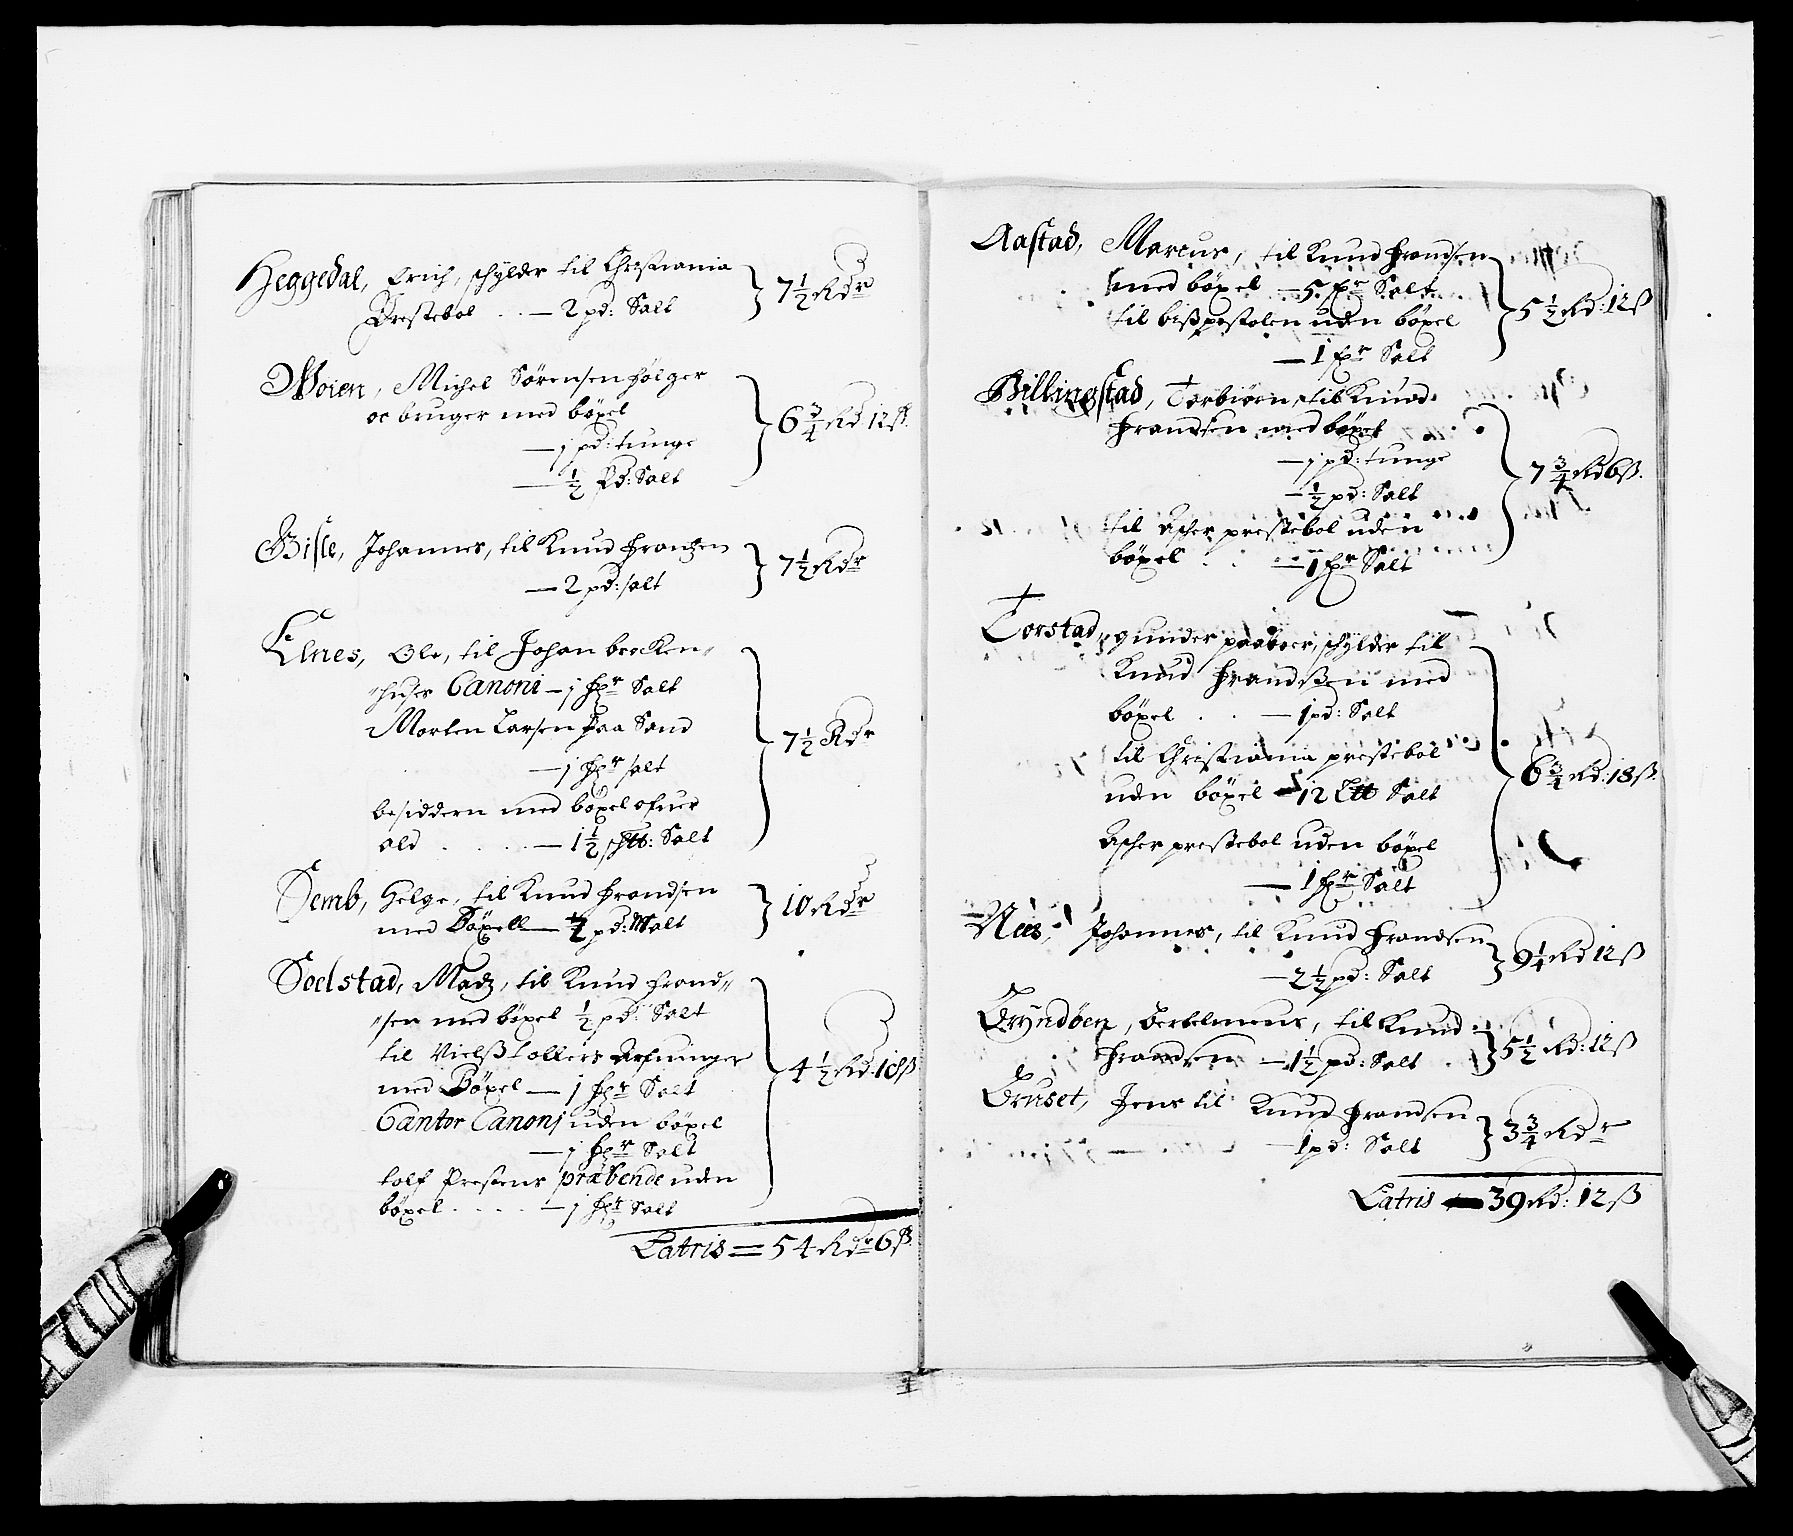 Heggedal, Erich, schylder til Christiania
Prestebol . . — 2 pd: Salt } 7½ Rdr
Woien, Michel Sörensen følger
oc bruger med böxel
— j pd: tunge
— ½ Pd: Salt } 6¾ Rd 12 ß.
Gisle, Johannes, til Knud Frantzen
— 2 pd: salt } 7½ Rdr
Elnes, Ole, til Johan brocken„
„huses Canoni — j fxr Salt
Morten Larsen paa Sand
— j fxr salt
besiddern med böxel ofuer
ald . . . . — 1½ schtt: Salt } 7½ Rdr
Semb, Helge, til Knud Frandsen
med Böxell — ½ pd: Malt } 10 Rdr
Soelstad, Madz, til Knud Frand„
„sen med böxel ½ pd: Salt
til Nielß tollers Arfuinger
med Böxel — j fxr Salt
Cantor Canonj uden böxel
— j fxr Salt
tolf Prestens præbende uden
böxel . . . . — j fxr Salt } 4½ Rd. 18 ß
Latris = 54 Rdr 6 ß.
Aastad, Marcus, til Knud Frandsen
med böxel — 5 fxr Salt
til bißpestolen uden böxel
— 1 fxr Salt } 5½ Rd: 12 ß
Billingstad, Torbiörn, til Knud
Frandsen med böxel
— j pd: tunge
— ½ pd: Salt
til Asher prestebol uden
böxel . . — 1 fxr Salt } 7¾ Rd 6 ß.
Torstad, gunder paaboer, schylder til
Knud Frandßen med
böxel . . — 1 pd: Salt
til Christiania prestebol
uden böxel — 12 Ltt Salt
Asher prestebol uden böxel
— 1 fxr Salt } 6¾ Rd: 18 ß.
Nees, Johannes, til Knud Frandsen
— 2½ pd: Salt } 9¼ Rd 12 ß
Bryndöen, Bertelmeus, til Knud
Frandsen — 1½ pd: Salt } 5½ Rd: 12 ß
Bruset, Jens til Knud Frandsen
— 1 pd: Salt } 3¾ Rdr
Latris — 39 Rd: 12 ß